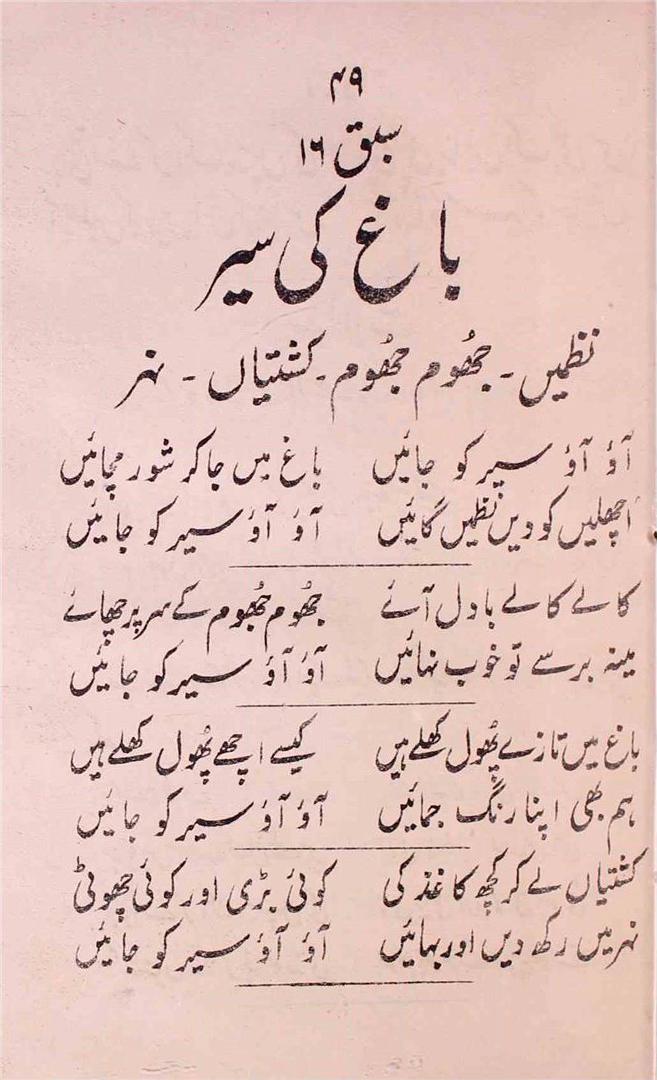 ۴۹
سبق ۱۶
باغ کی سیر
نظمیں ۔ جھُوم جھُوم ۔ کشتیاں ۔ نہر
آؤ آؤ سیر کو جائیں باغ میں جا کر شور مچائیں
اُچھلیں کودیں نظمیں گائیں آؤ آؤ سیر کو جائیں
کالے کالے بادل آئے جھُوم جھُوم کے سر پر چھائے
مینہ برسے تو خوب نہائیں آؤ آؤ سیر کو جائیں
باغ میں تازے پھُول کھلے ہیں کیسے اچھے پھُول کھلے ہیں
ہم بھی اپنا رنگ جمائیں آؤ آؤ سیر کو جائیں
کشتیاں لے کر کچھ کاغذ کی کوئی بڑی اور کوئی چھوٹی
نہر میں رکھ دیں اور بہائیں آؤ آؤ سیر کو جائیں